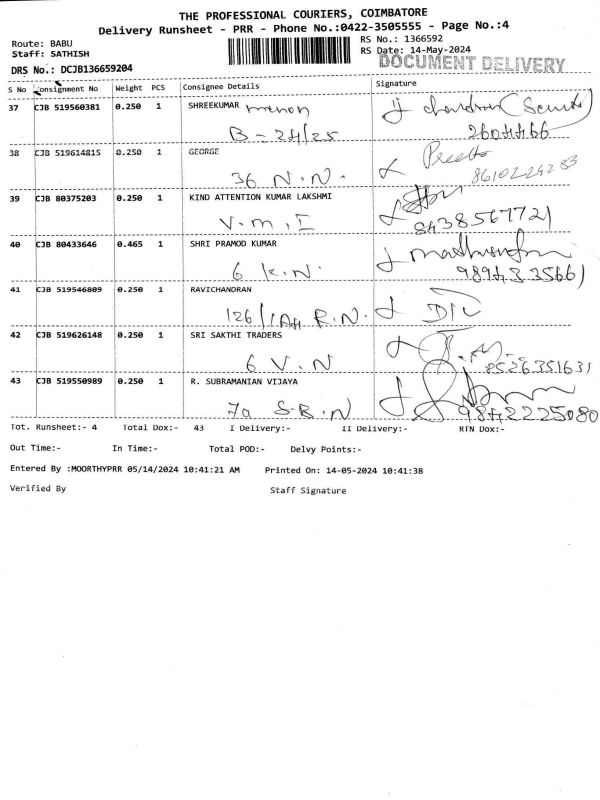 THE PROFESSIONAL COURIERS, COIMBATORE
Delivery Runsheet - PRR - Phone No.:0422-3505555 - Page No.:4
Route: BABU
RS No.: 1366592
Staff: SATHISH
RS Date: 14-May-2024
DOCUMENT DELIVERY
DRS No.: DCJB136659204
S No Consignment No Weight PCS Consignee Details Signature
37 CJB 519560381 0.250 1 SHREEKUMAR menon
B-24/25
38 CJB 519614815 0.250 1 GEORGE
36 N.N.
39 CJB 80375203 0.250 1 KIND ATTENTION KUMAR LAKSHMI
V.M.I
8438567721
40 CJB 80433646 0.465 1 SHRI PRAMOD KUMAR
6 K.N.
41 CJB 519546809 0.250 1 RAVICHANDRAN
R.N.
42 CJB 519626148 0.250 1 SRI SAKTHI TRADERS
6 V.N
8526351631
43 CJB 519550989 0.250 1 R. SUBRAMANIAN VIJAYA
7a S.B.N
9842225080
Tot. Runsheet:- 4 Total Dox:- 43 I Delivery:- II Delivery:- RTN Dox:-
Out Time:- In Time:- Total POD:- Delvy Points:-
Entered By :MOORTHYPRR 05/14/2024 10:41:21 AM Printed On: 14-05-2024 10:41:38
Verified By Staff Signature